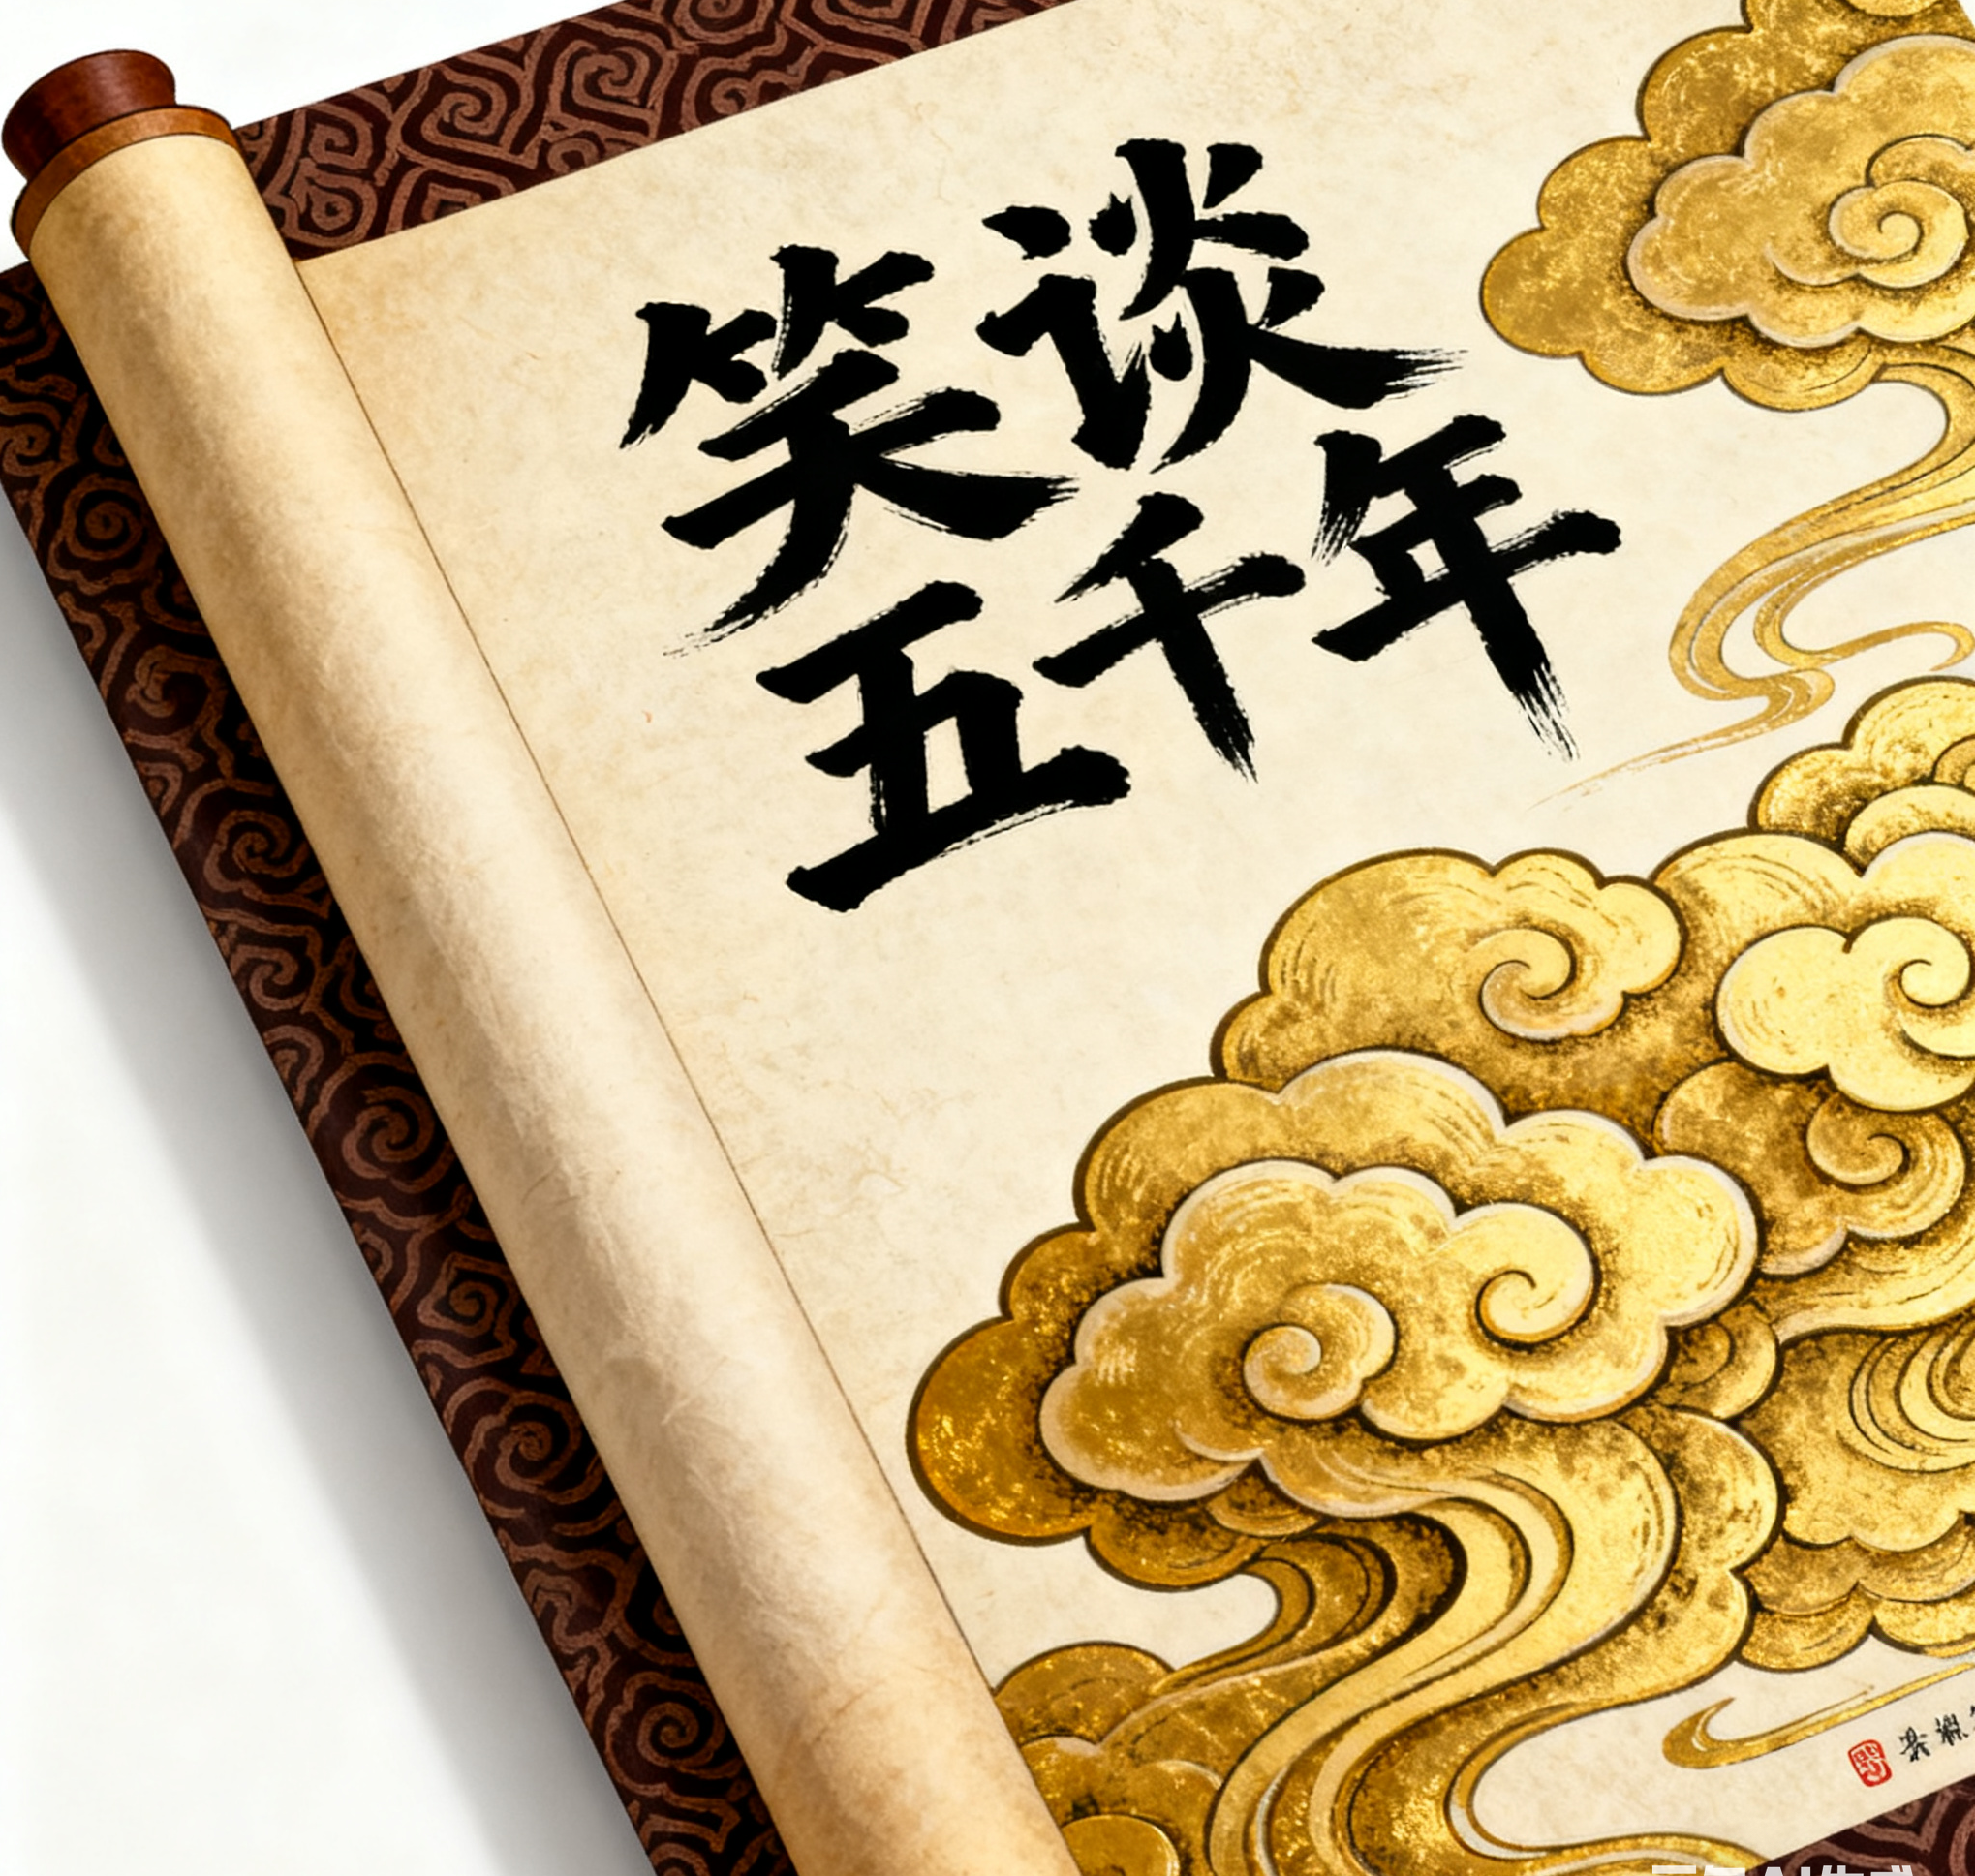 笑谈
五千年